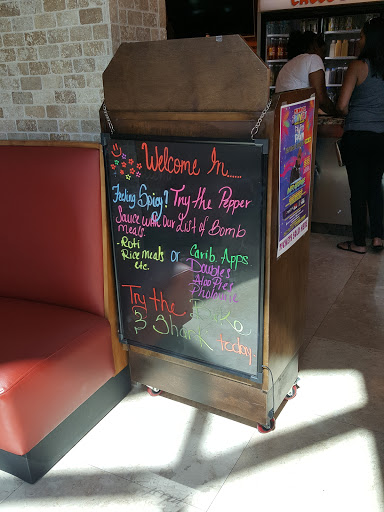 Welcome In.....
Feeling Spicy? Try the Pepper
Sauce with our List of Bomb
meals.
- Roti
Rice meals or
etc.
Carib. Apps
Doubles
Aloo Pies
Pholourie
Try the
Bake
&
Shark today